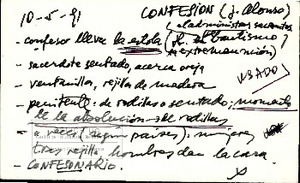 10-5-91 CONFESION (J. Alonso)
(al administrar sacramentos
- confesor lleva la estola (K. el bautismo
y extremaunción)
- sacerdote sentado, acerca oreja
- ventanilla, rejilla de madera
USADO
- penitente: de rodillas o sentado; momento
de la absolución → de rodillas
a veces (según países): mujeres
tras rejilla, hombres dan la cara.
- CONFESONARIO.